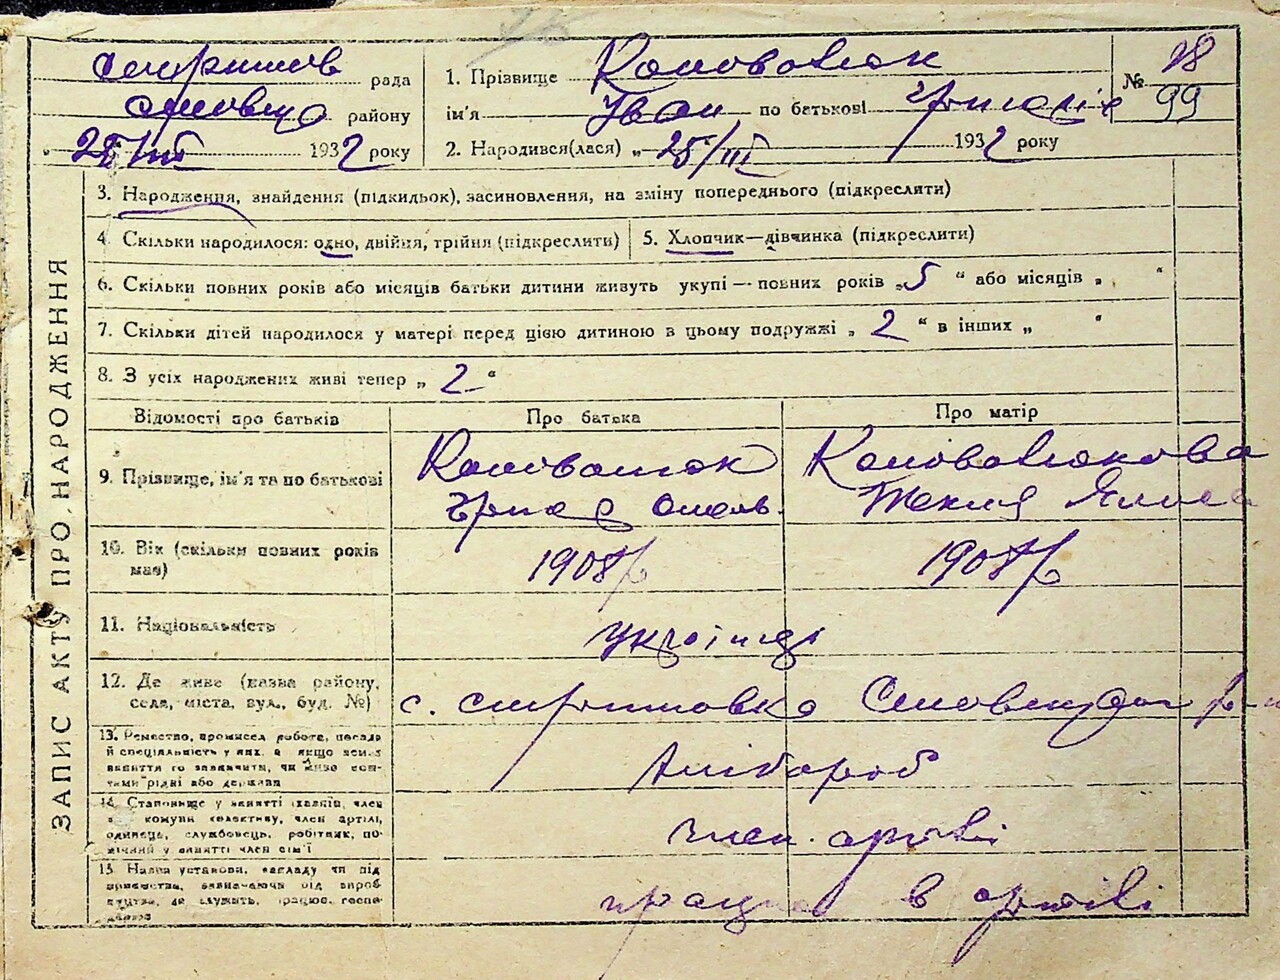 рада
району
193 2 року
1. Прізвище Коновалюк
ім'я Іван по батькові
2. Народився(лася) „ 25/III 193 2 року
№ 18
99
ЗАПИС АКТУ ПРО НАРОДЖЕННЯ
3. Народження, знайдення (підкидьок), засиновлення, на зміну попереднього (підкреслити)
4. Скільки народилося: одно, двійня, трійня (підкреслити)
5. Хлопчик—дівчинка (підкреслити)
6. Скільки повних років або місяців батьки дитини живуть укупі — повних років „ 5 “ або місяців „ “
7. Скільки дітей народилося у матері перед цією дитиною в цьому подружжі „ 2 “ в інших „ “
8. З усіх народжених живі тепер „ 2 “
Відомості про батьків
Про батька
Про матір
9. Прізвище, ім'я та по батькові
Коновалюк
Коновалюкова
Омель.
Текля
10. Вік (скільки повних років має)
1908 р
1908 р
11. Національність
українці
12. Де живе (назва району, села, міста, вул., буд. №)
с.
13. Ремество, промисел, робота, посада й спеціальність у них, а якщо нема заняття то зазначити, чи живе коштами рідні або держави
хлібороб
14. Становище у занятті (хазяїн, член комуни колективу, член артілі, одинець, службовець, робітник, помічний у занятті член сім'ї
член артілі
15. Назва установи, закладу чи підприємства,
працює в артілі